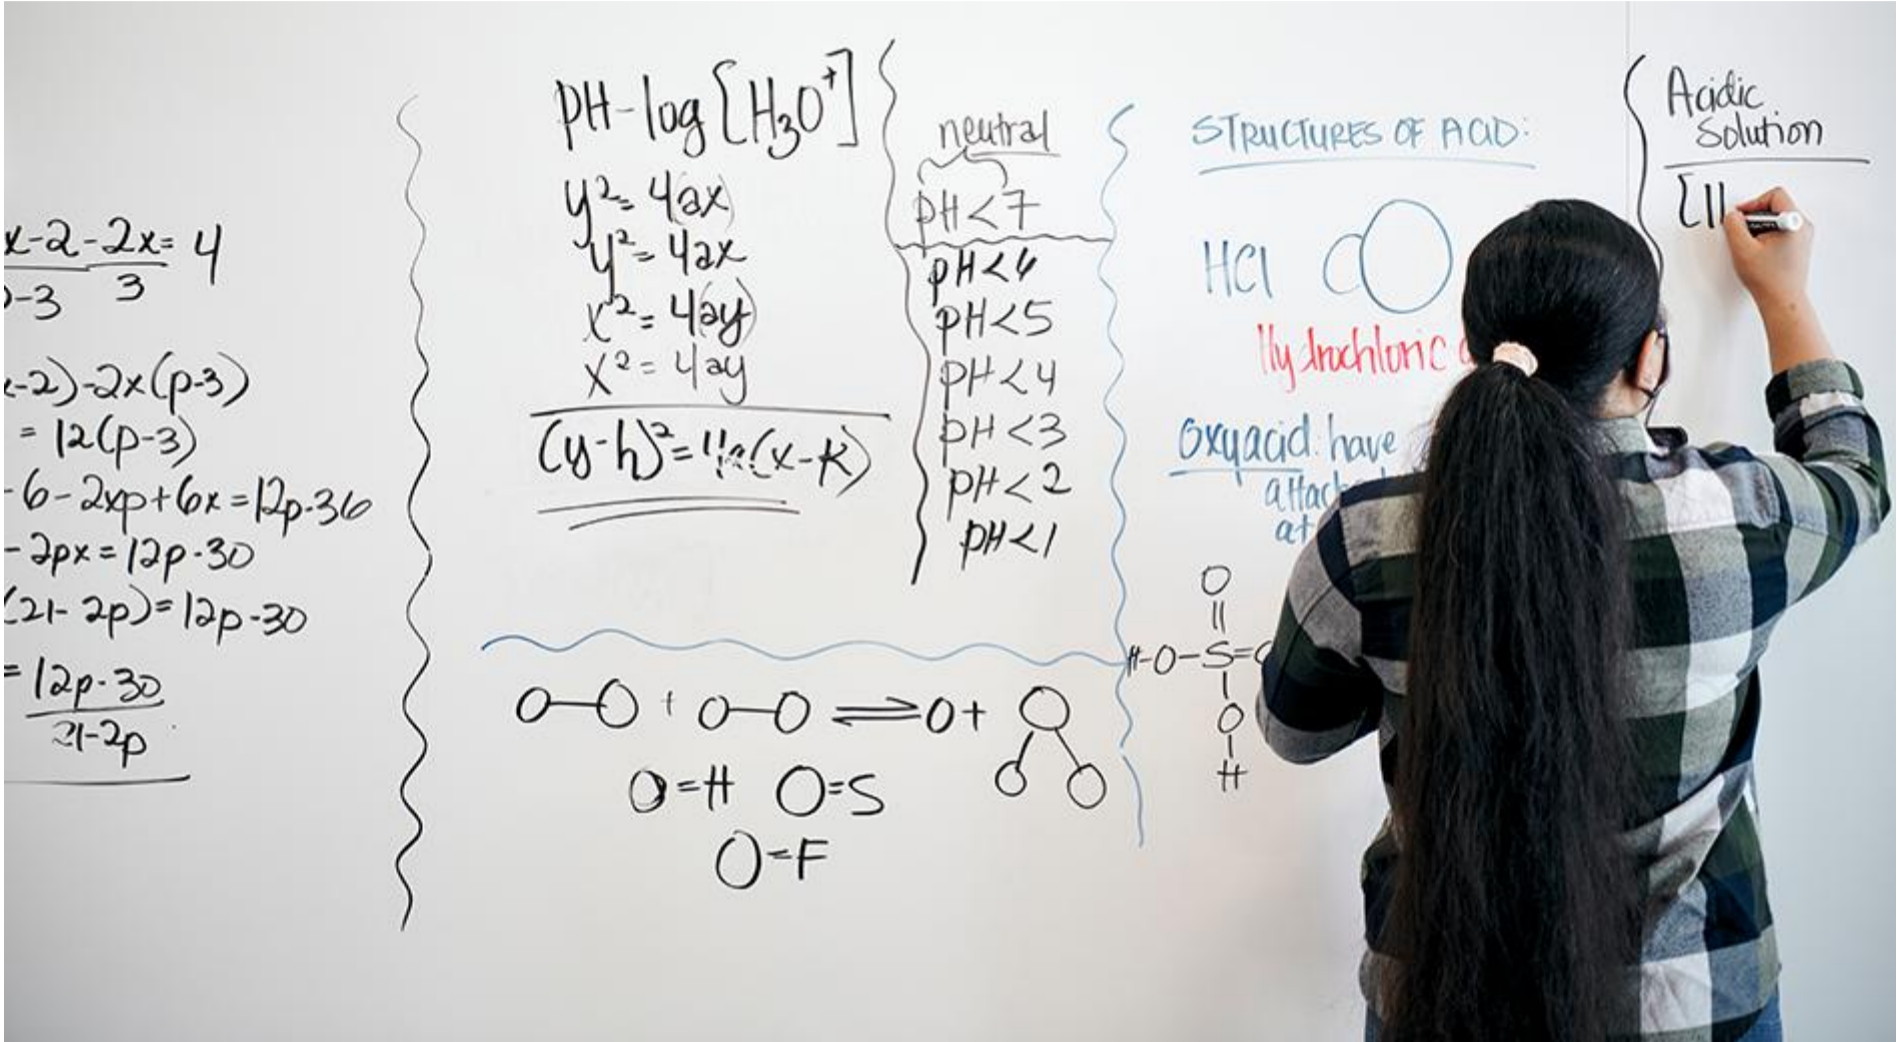 x-2 - 2x = 4
p-3 3
x-2)-2x(p-3)
= 12(p-3)
-6-2xp+6x=12p-36
-2px=12p-30
(21-2p)=12p-30
= 12p-30
21-2p
pH-log[H₃O⁺]
y²=4(ax)
y²=4ax
x²=4(ay)
x²=4ay
(y-h)²=4a(x-k)
neutral
pH<7
pH<6
pH<5
pH<4
pH<3
pH<2
pH<1
O-O + O-O ⇌ O+
O=H O=S
O=F
STRUCTURES OF ACID:
HCl
Hydrochloric
Oxyacid: have
O
H-O-S=
O
H
Acidic
Solution